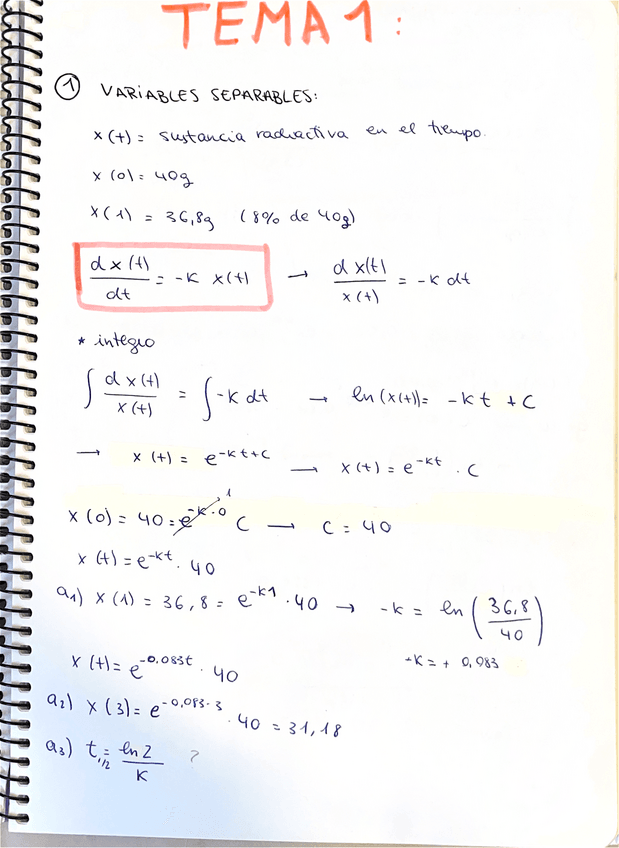 TEMA 1:
① VARIABLES SEPARABLES:
x(t) = sustancia radiactiva en el tiempo.
x(0) = 40g
x(1) = 36,8g (8% de 40g)
dx(t)/dt = -K x(t) → dx(t)/x(t) = -K dt
* integro
∫ dx(t)/x(t) = ∫ -K dt → ln(x(t)) = -Kt + C
→ x(t) = e^(-Kt+C) → x(t) = e^(-Kt) · C
x(0) = 40 = e^(-K·0) 1 C → C = 40
x(t) = e^(-Kt) · 40
a1) x(1) = 36,8 = e^(-K1) · 40 → -K = ln(36,8/40)
-K = + 0,083
x(t) = e^(-0,083t) · 40
a2) x(3) = e^(-0,083·3) · 40 = 31,18
a3) t1/2 = ln2/K ?